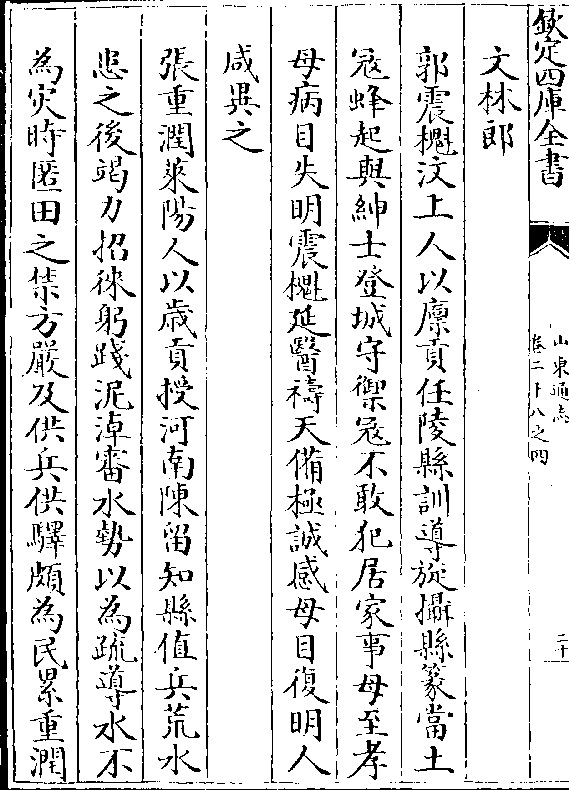 欽定四庫全書
山東通志
卷二十八之四
二十
文林郎
郭震櫆汶上人以廪貢任陵縣訓導旋攝縣篆當土
冦蜂起與紳士登城守禦冦不敢犯居家事母至孝
母病目失明震櫆延醫禱天備極誠感母目復明人
咸異之
張重潤萊陽人以歲貢授河南陳留知縣值兵荒水
患之後竭力招徠躬踐泥淖審水勢以為疏導水不
為灾時匿田之禁方嚴及供兵供驛頗為民累重潤